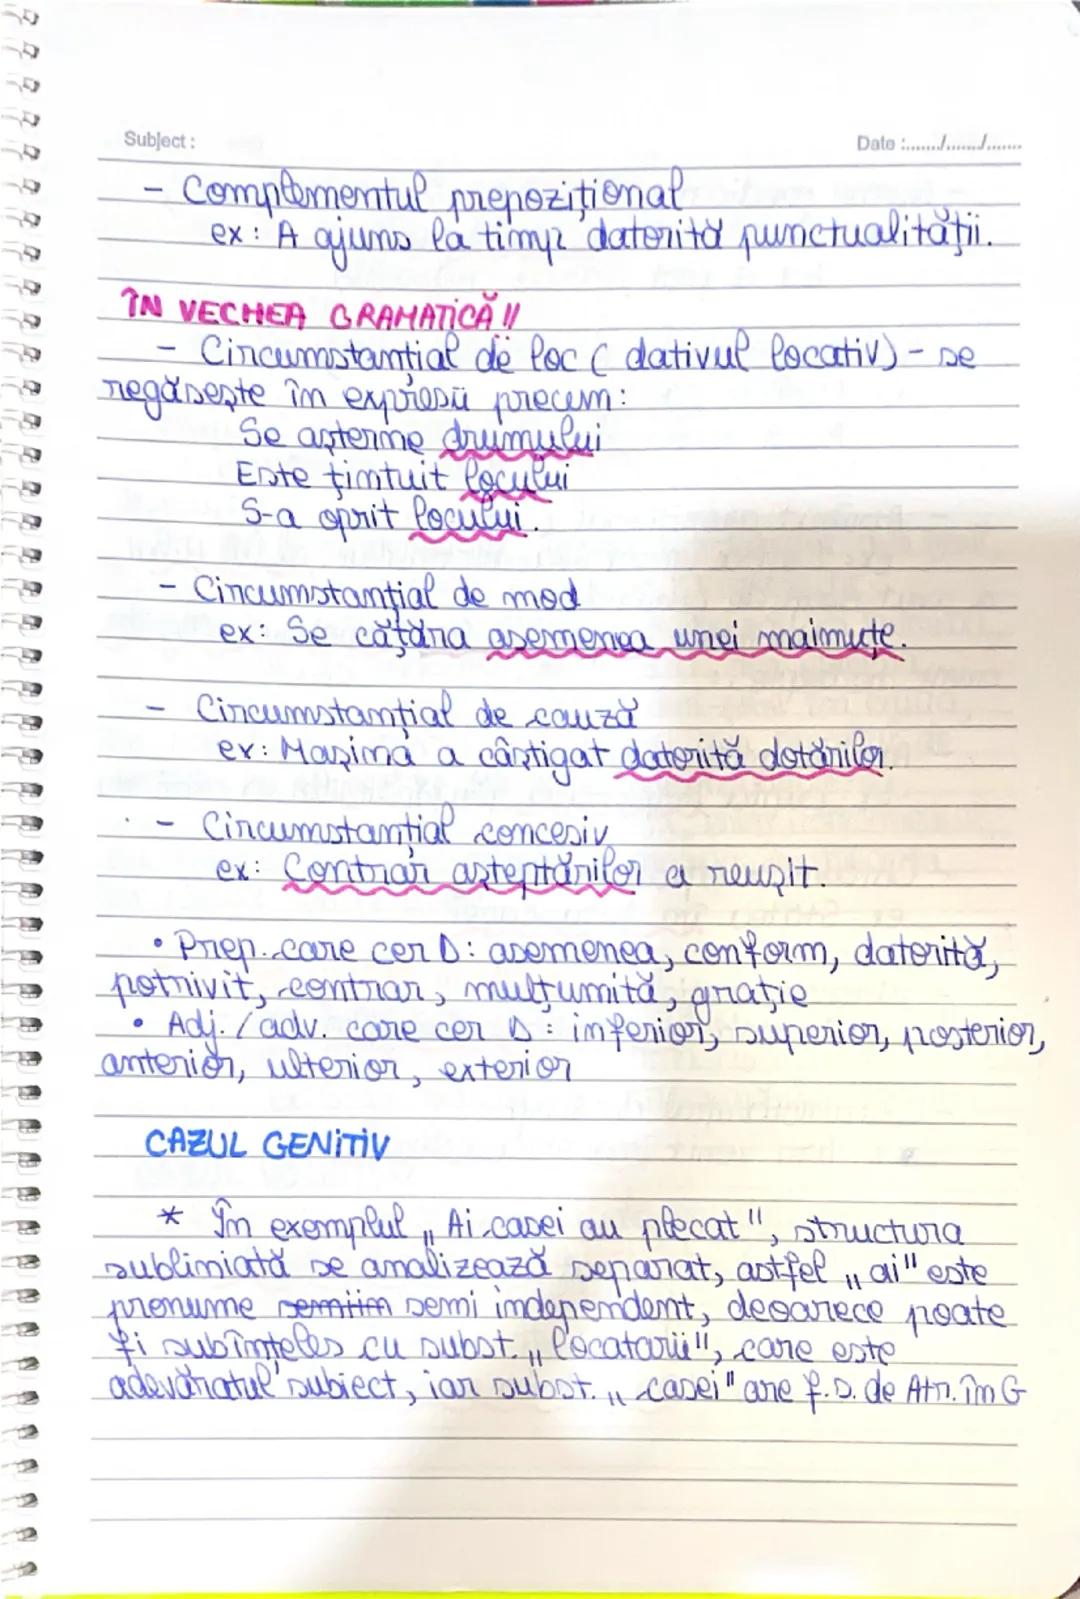 Subject :
Date :......./......./.......
- Complementul prepozițional
ex: A ajuns la timp datorită punctualității.
ÎN VECHEA GRAMATICĂ !!
- Circumstanțial de loc ( dativul locativ) - se
regăsește în expresii precum:
Se așterne drumului
Este țintuit locului
S-a oprit locului.
- Circumstanțial de mod
ex: Se cățăra asemenea unei maimuțe.
- Circumstanțial de cauză
ex: Mașina a câștigat datorită dotărilor.
- Circumstanțial concesiv
ex: Contrar așteptărilor a reușit.
• Prep. care cer D: asemenea, conform, datorită,
potrivit, contrar, mulțumită, grație
• Adj. / adv. care cer D : inferior, superior, posterior,
anterior, ulterior, exterior
CAZUL GENITIV
* În exemplul „ Ai casei au plecat", structura
subliniată se analizează separat, astfel „ ai" este
pronume semi independent, deoarece poate
fi subînțeles cu subst. „ locatarii", care este
adevăratul subiect, iar subst. „ casei" are f.s. de Atr. în G